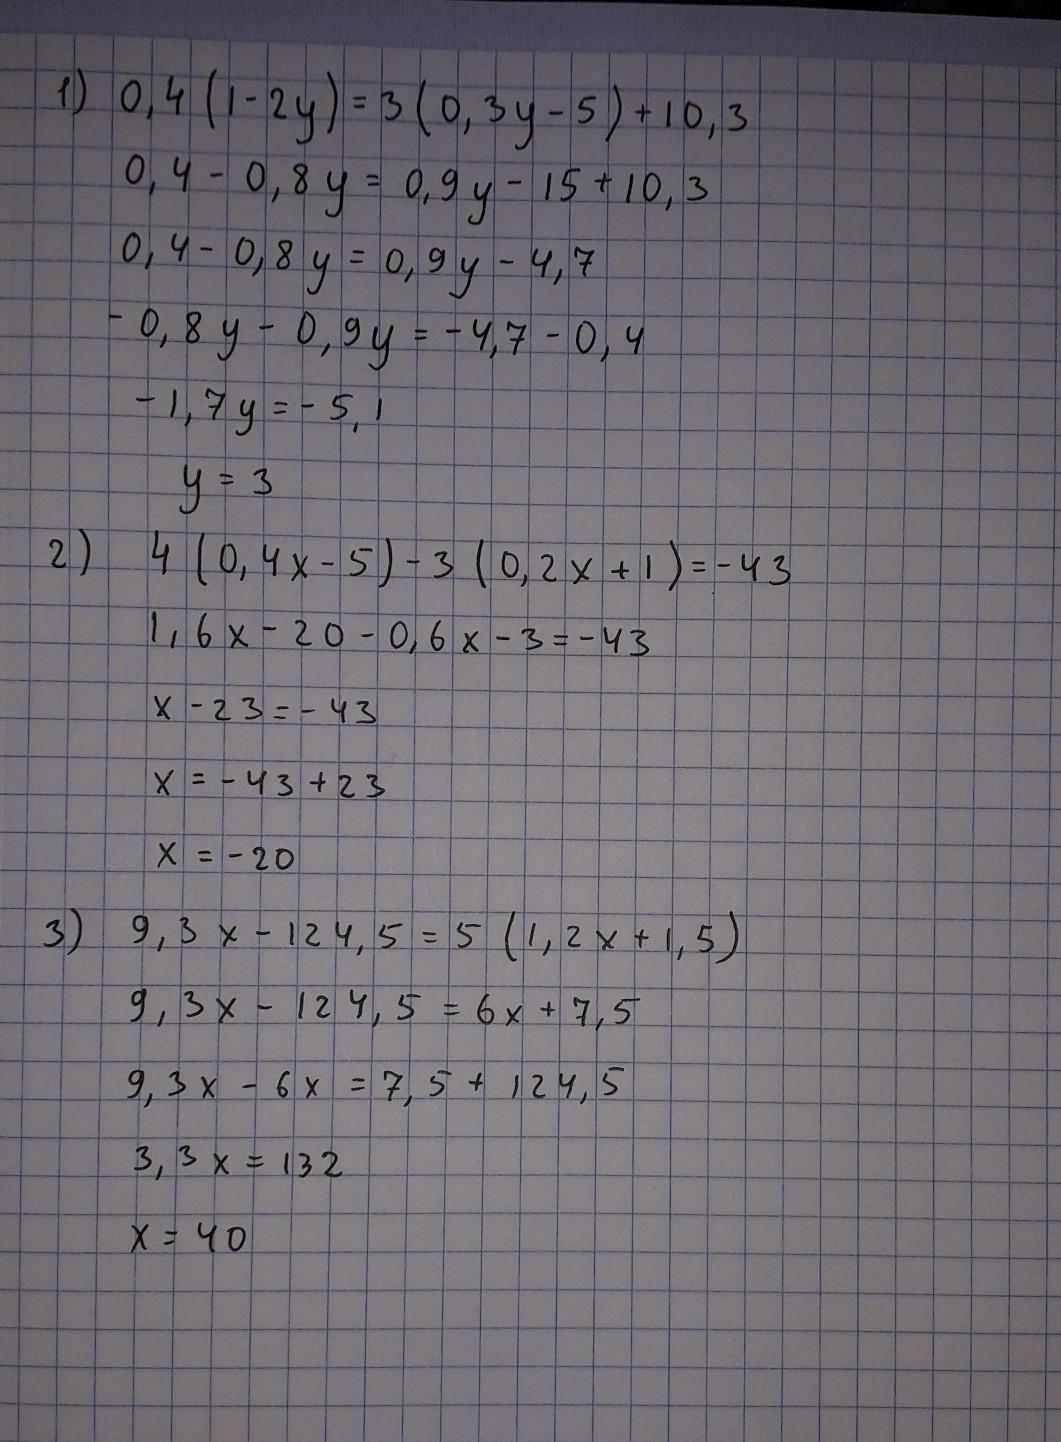 1) 0,4(1-2y)=3(0,3y-5)+10,3
0,4-0,8y=0,9y-15+10,3
0,4-0,8y=0,9y-4,7
-0,8y-0,9y=-4,7-0,4
-1,7y=-5,1
y=3
2) 4(0,4x-5)-3(0,2x+1)=-43
1,6x-20-0,6x-3=-43
x-23=-43
x=-43+23
x=-20
3) 9,3x-124,5=5(1,2x+1,5)
9,3x-124,5=6x+7,5
9,3x-6x=7,5+124,5
3,3x=132
x=40